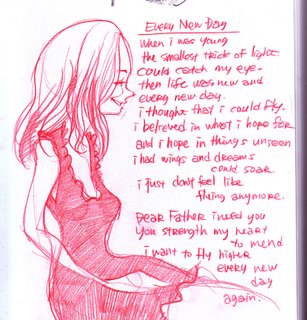 Every New Day
When i was young
the smallest trick of light
could catch my eye-
then life was new and
every new day.
i thought that i could fly.
i believed in what i hope for
and i hope in things unseen
i had wings and dreams
could soar.
i just don't feel like
flying anymore.
Dear Father i need you
You strength my heart
to mend
i want to fly higher
every new
day
again.